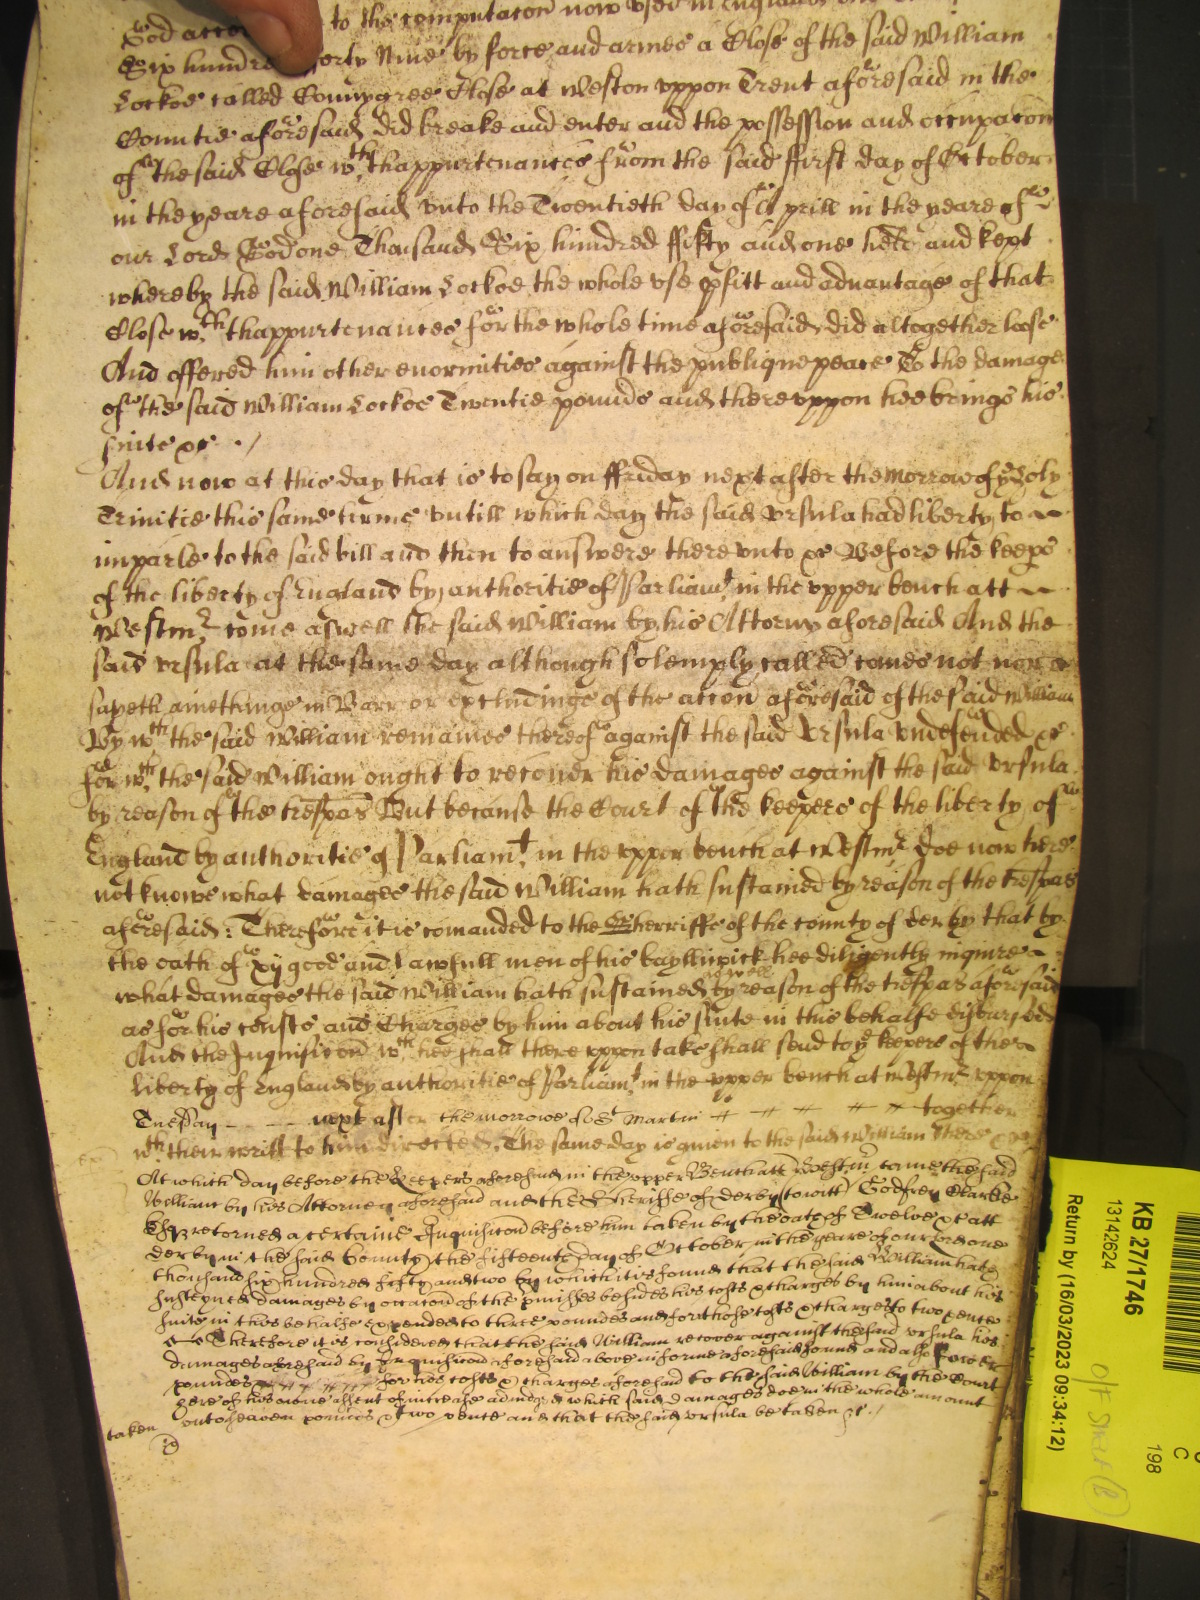 God accor to the computacon now vsed in England one
Six hundre forty Nine by force and armes a Close of the said William
Lockoe called Connygree Close at Weston vppon Trent aforesaid in the
Countie aforesaid did breake and enter and the possession and occupacon
of the said Close wth thappurtenances from the said ffirst day of October
in the yeare aforesaid vnto the Twentieth day of Aprill in the yeare of
our Lord God one Thousand Six hundred ffifty and one held and kept
whereby the said William Lockoe the whole vse pfitt and aduantage of that
Close wth thappurtenances for the whole time aforesaid did altogether loose
And offered him other enormities against the publique peace To the damage
of the said William Lockoe Twentie pounds and there vppon hee brings his
suite &c ./
And now at this day that is to say on ffriday next after the morrow of ye holy
Trinitie this same terme vntill which day the said Vrsula had liberty to
imparle to the said bill and then to answere there vnto &c Before the keeps
of the liberty of England by authoritie of Parliamt in the vpper bench att
Westmr come aswell the said William by his Attorny aforesaid And the
said Vrsula at the same day although solemply called comes not nor
sayeth aniethinge in Barr or excludinge of the accon aforesaid of the said William
By wch the said William remaines thereof against the said Vrsula vndefended &c
for wch the said William ought to recouer his damages against the said Vrsula
by reason of the trespas But because the Court of the keepers of the liberty of
England by authoritie of Parliamt in the vpper bench at Westmr doe now here
not knowe what damages the said William hath sustained by reason of the trespas
aforesaid: Therefore it is comanded to the Sherriffe of the county of derby that by
the oath of xij good and Lawfull men of his baylliwick hee diligently inquire
what damages the said William hath sustained aswell by reason of the trespas aforesaid
as for his costs and Charges by him about his suite in this behalfe disbursed
And the Inquisicon wch hee shall there vppon take shall send to ye keepers of the
liberty of England by authoritie of Parliamt in the vpper bench at Westmr vppon
Tuesday - - - next after the morrowe of St Martin together
wth their writt to him directed. The same day is giuen to the said William there &c
At which day before the Keepers aforesaid in the vpper Bench att Westmr came the said
William by his Attorney aforesaid and the Sherriffe of Derby (to witt) Godfrey Clarke
Esqr returned a certaine Inquisicon before him taken by the oath of Twelve &c att
derby in the said County the fifteenth day of October in the yeare of our Lord one
thousand six hundred fifty and two by which it is found that the said William hath
susteyned damages by occacon of the pmisses besides his costs & charges by him about his
suite in this behalfe expended to three pounds and for those costs & charges to two pence
Therefore it is considered that the said William recover against the said Vrsula his
damages aforesaid by Inquisicon aforesaid above in forme aforesaid found and also Fower
pounds for his costs & charges aforesaid to the said William by the Court
here of his owne assent of increase adiudged which said damages doe in the whole amount
vnto seaven pounds & two pence and that the said Vrsula be taken &c. /
taken
KB 27/1746
13142624
Return by (16/03/2023 09:34:12)
C
198
O/F